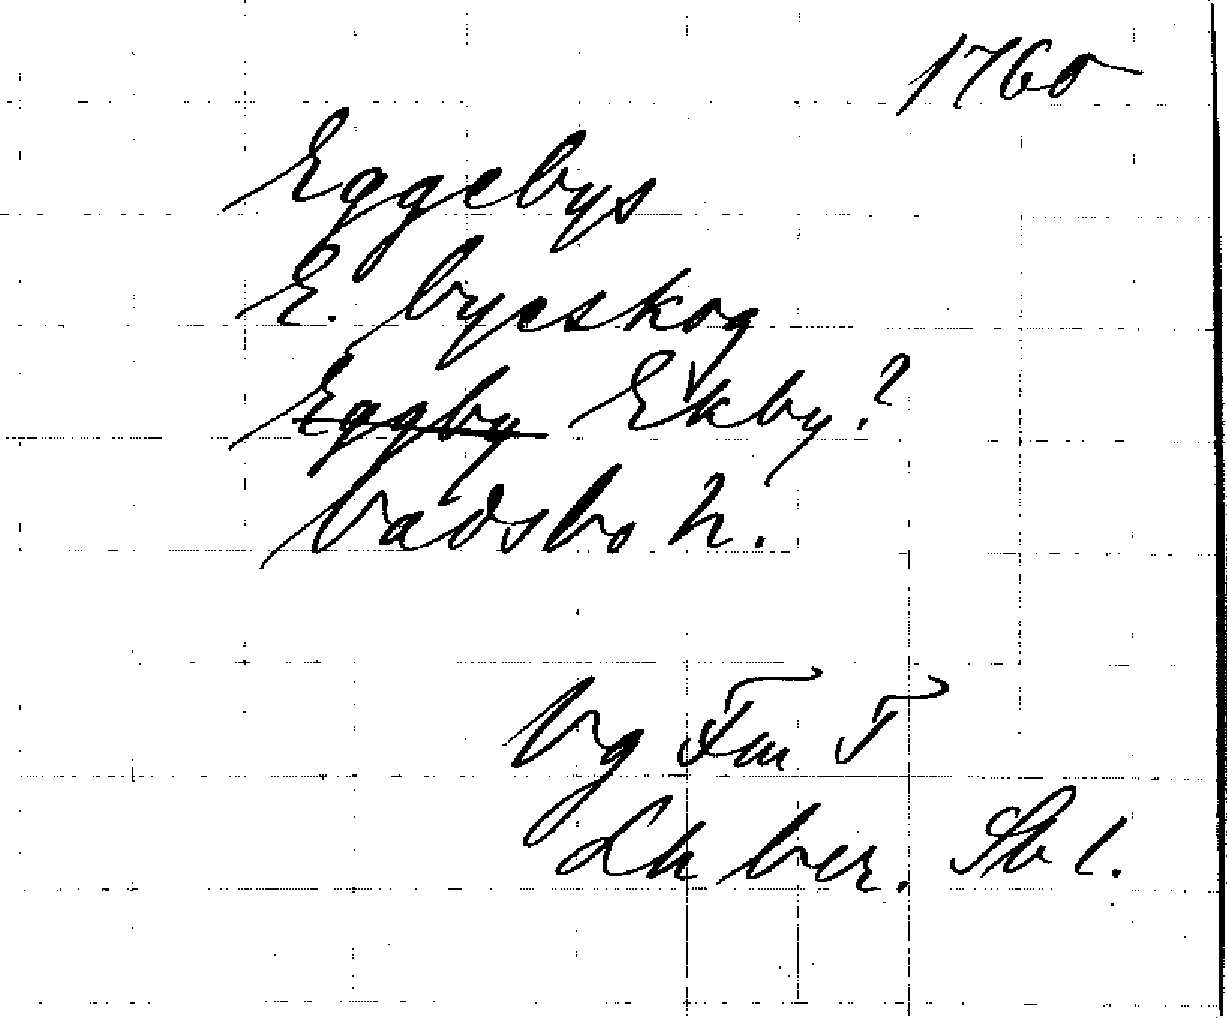 1760
Eggebys
E. byeskog
Eggby Ekby?
Vadsbo h.
Vg Fm T
Lh ber. Sb l.